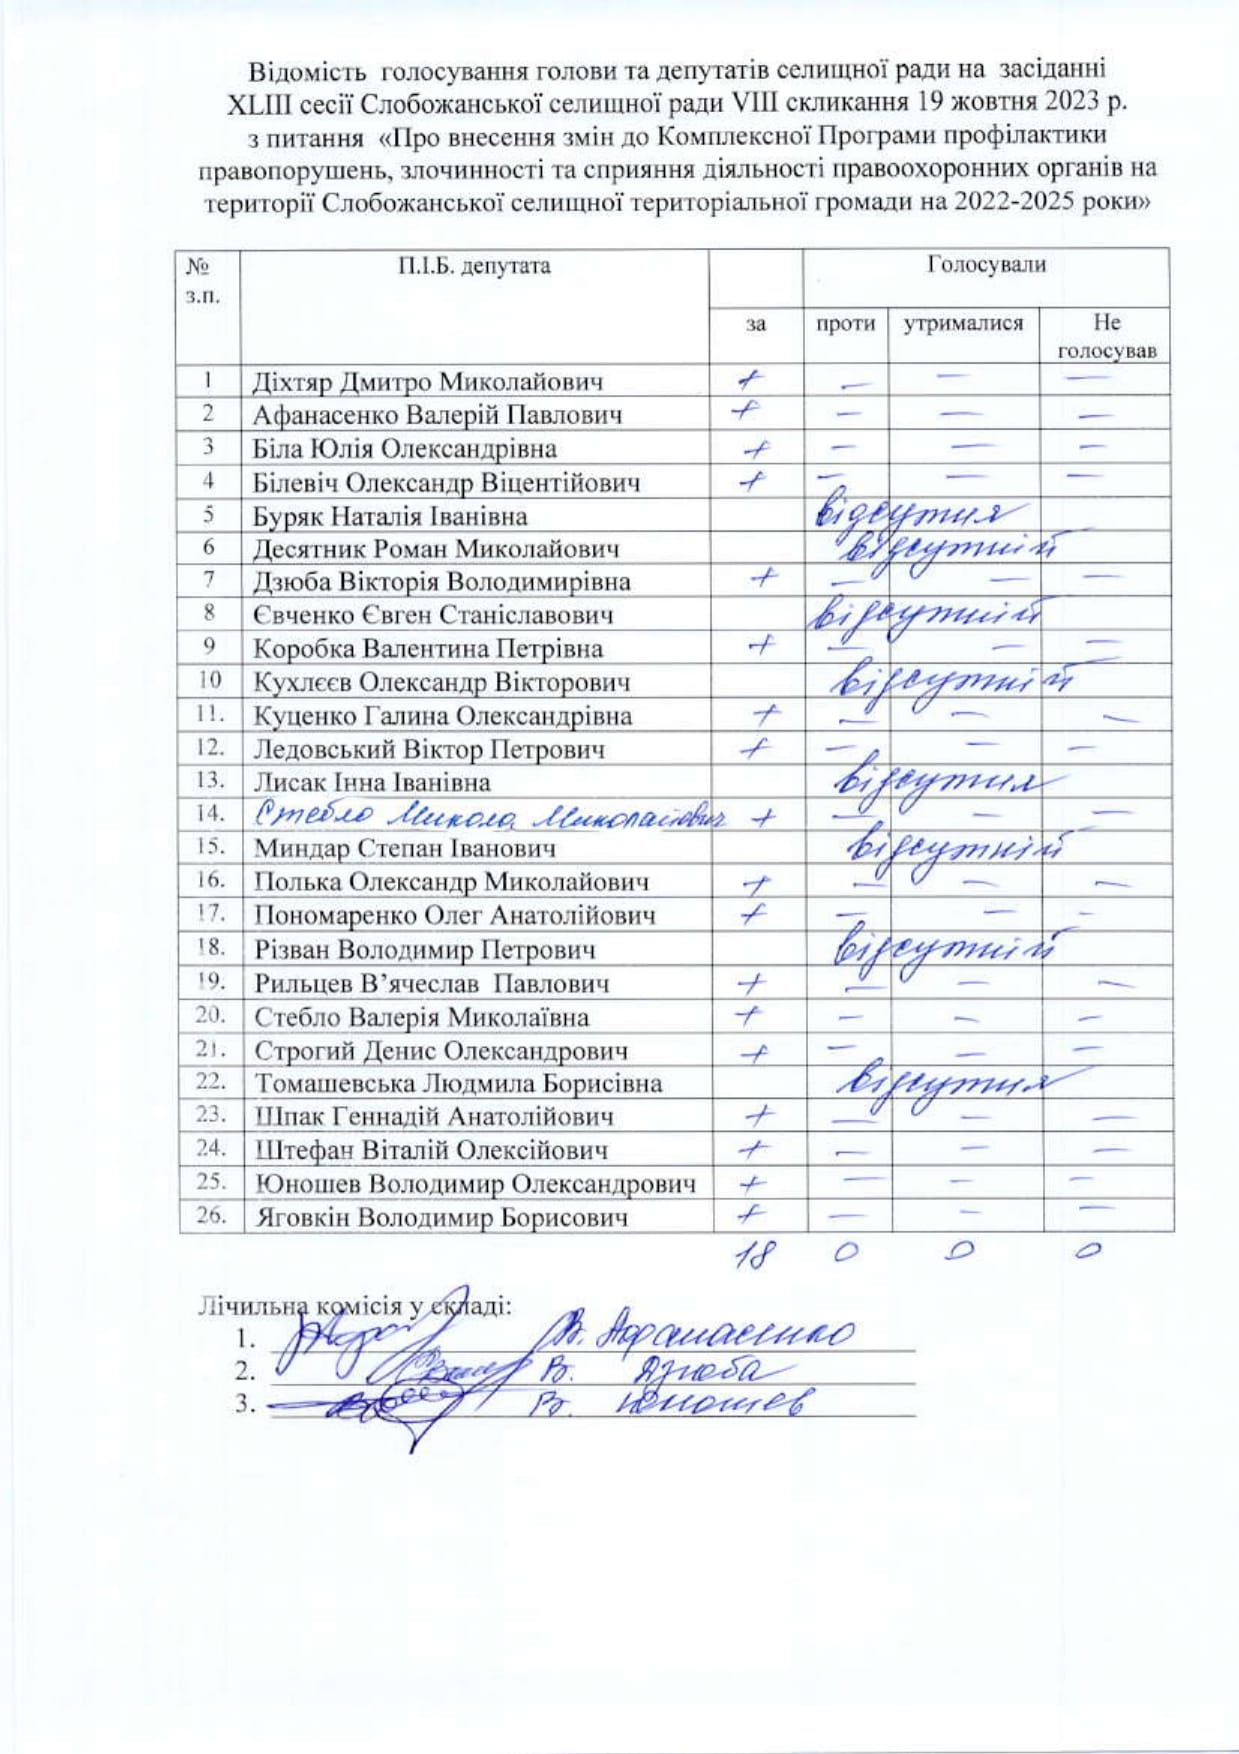 Відомість голосування голови та депутатів селищної ради на засіданні
XLIII сесії Слобожанської селищної ради VIII скликання 19 жовтня 2023 р.
з питання «Про внесення змін до Комплексної Програми профілактики
правопорушень, злочинності та сприяння діяльності правоохоронних органів на
території Слобожанської селищної територіальної громади на 2022-2025 роки»
№ з.п. П.І.Б. депутата Голосували
за проти утрималися Не голосував
1 Діхтяр Дмитро Миколайович + — — —
2 Афанасенко Валерій Павлович + — — —
3 Біла Юлія Олександрівна + — — —
4 Білевіч Олександр Віцентійович + — — —
5 Буряк Наталія Іванівна відсутня
6 Десятник Роман Миколайович відсутній
7 Дзюба Вікторія Володимирівна + — — —
8 Євченко Євген Станіславович відсутній
9 Коробка Валентина Петрівна + — — —
10 Кухлєєв Олександр Вікторович відсутній
11. Куценко Галина Олександрівна + — — —
12. Ледовський Віктор Петрович + — — —
13. Лисак Інна Іванівна відсутня
14. Стебло Микола Миколайович + — — —
15. Миндар Степан Іванович відсутній
16. Полька Олександр Миколайович + — — —
17. Пономаренко Олег Анатолійович + — — —
18. Різван Володимир Петрович відсутній
19. Рильцев В’ячеслав Павлович + — — —
20. Стебло Валерія Миколаївна + — — —
21. Строгий Денис Олександрович + — — —
22. Томашевська Людмила Борисівна відсутня
23. Шпак Геннадій Анатолійович + — — —
24. Штефан Віталій Олексійович + — — —
25. Юношев Володимир Олександрович + — — —
26. Яговкін Володимир Борисович + — — —
18 0 0 0
Лічильна комісія у складі:
1. В. Афанасенко
2. В. Дзюба
3. В. Юношев